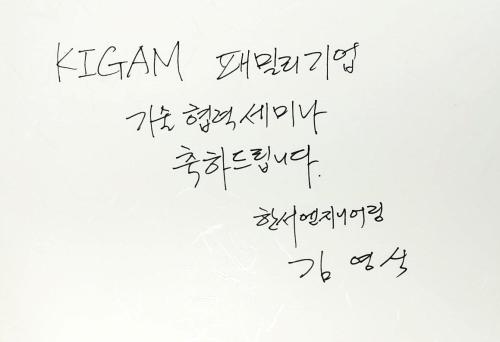 KIGAM 패밀리기업
기술협력세미나
축하드립니다.
한서엔지니어링
김영석